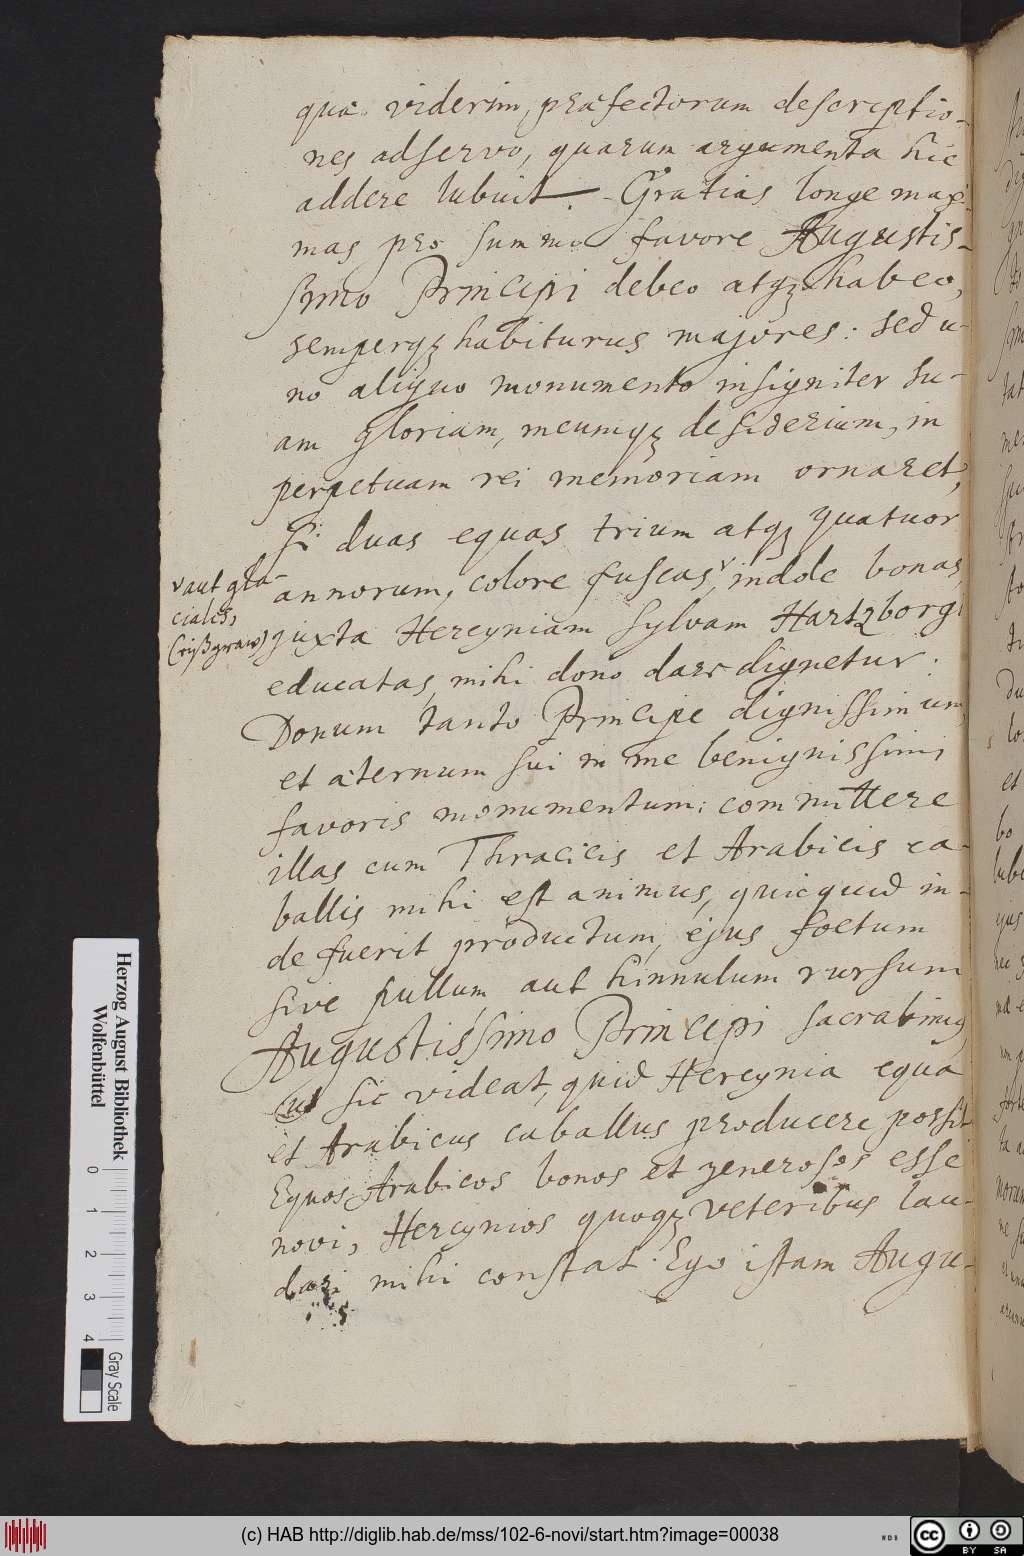 quà viderim, praefectorum descriptio-
nes adservo, quarum argumenta hic
addere lubuit. Gratias longe maxi-
mas pro summo favore Augustis-
simo Principi debeo atqz habeo,
semperqz habiturus majores: sed u-
no aliquo monumento insigniter su-
am gloriam, meumqz desiderium, in
perpetuam rei memoriam ornaret,
Si duas equas trium atqz quatuor
annorum, colore fuscas, indole bonas,
vaut gla-
cialis,
juxta Hercyniam sylvam Hartzborgi
educatas, mihi dono dare dignetur.
Donum tanto Principe dignissimum,
et aeternum sui in me benignissimi
favoris monumentum: committere
illas cum Thracicis et Arabicis ca-
ballis mihi est animus, quicquid in-
de fuerit productum, ejus foetum
sive pullum, aut hinnulum rursum
Augustissimo Principi sacrabimus,
ut sic videat, quid Hercynia equa
et Arabicus caballus producere possit
Equos Arabicos bonos et generosos esse
novi, Hercynios quoqz veteribus lau-
dari mihi constat. Ego istam Augu-
Herzog August Bibliothek
Wolfenbüttel
0 1 2 3 4
Gray Scale
(c) HAB http://diglib.hab.de/mss/102-6-novi/start.htm?image=00038
WDB
cc BY SA